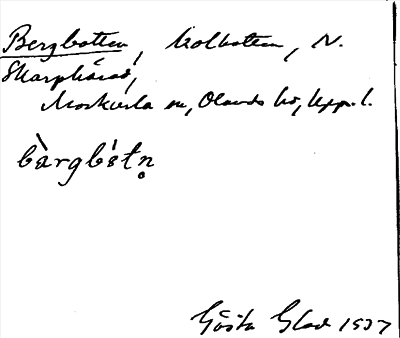 Bergbotten, Kolbotten, N.
Skarphärad,
Morkarla sn, Olands hd, Uppl.
bàrgbśtn̥
Gösta Glad 1937